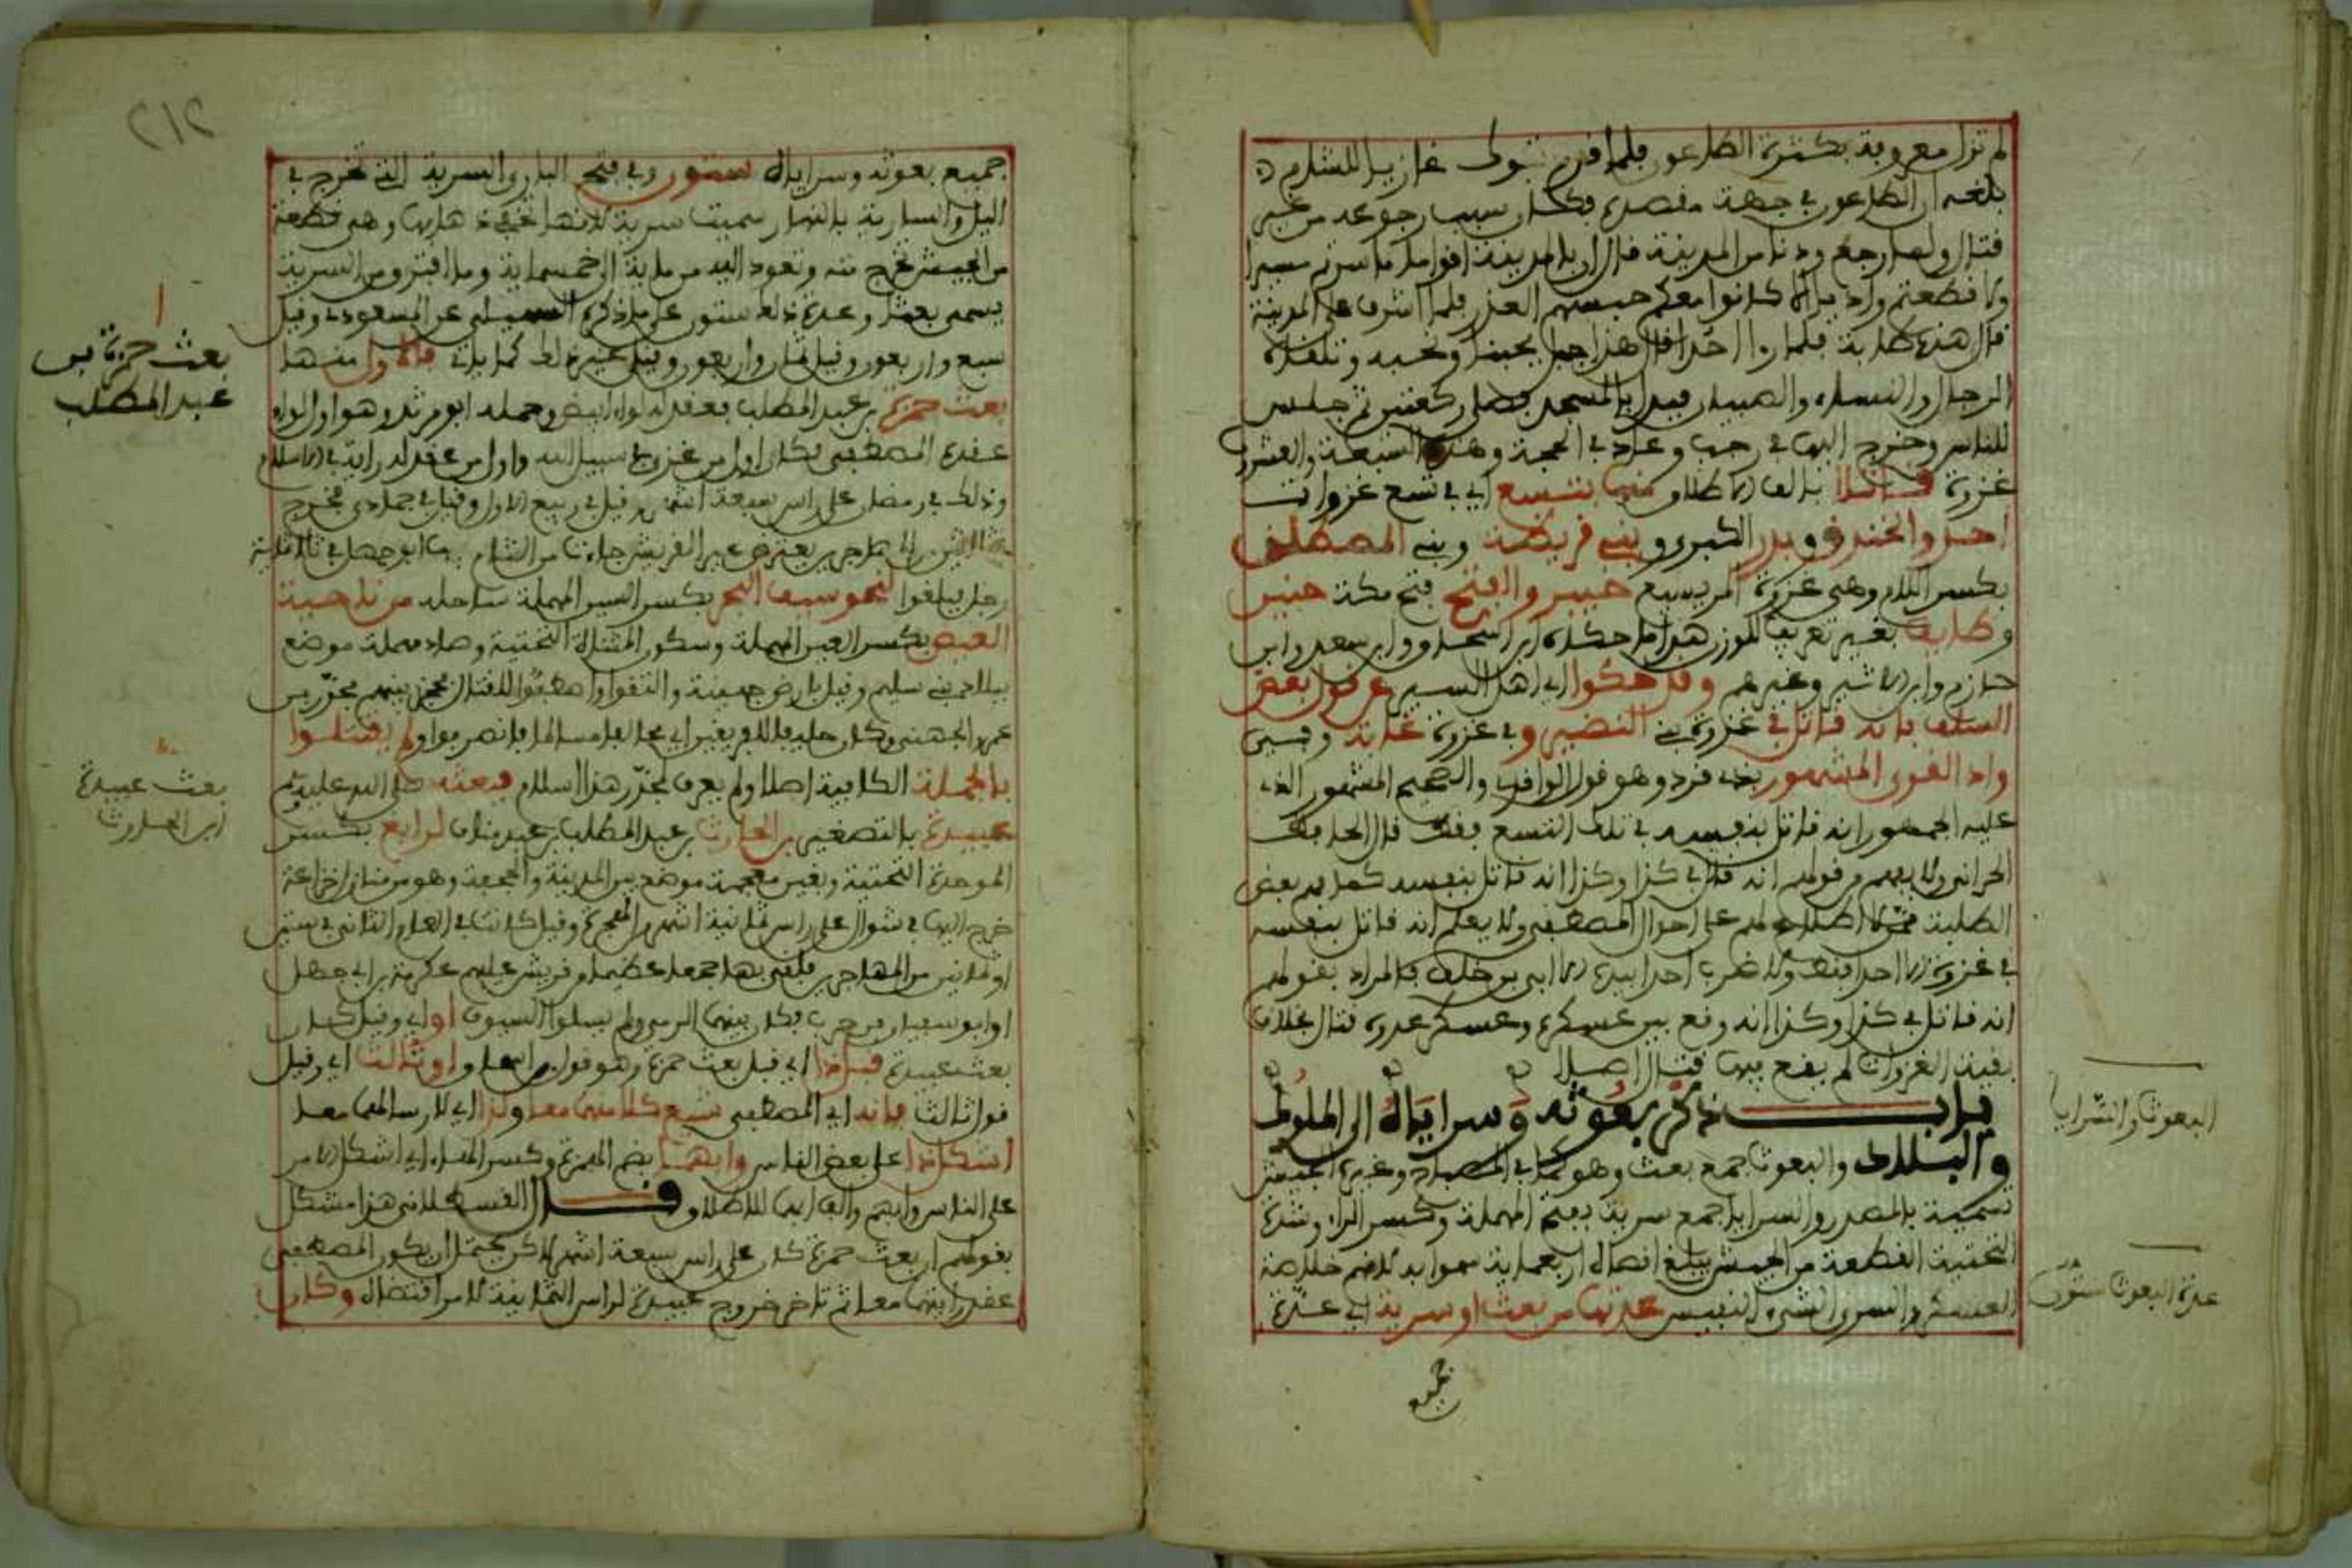 لم تزل معروفة بكثرة الطاعون فلما قدم تبوك غازيا للشام
بلغه ان الطاعون في جهة مقصده فكان سبب رجوعه من غير
قتال ولما رجع ودنا من المدينة قال ان بالمدينة اقواما ما سرتم مسيرا
ولا قطعتم واديا الا كانوا معكم حبسهم العذر فلما اشرف على المدينة
قال هذه طابة فلما راى احدا قال هذا جبل يحبنا ونحبه وتلقاه
الرجال والنساء والصبيان فبدا بالمسجد فصلى ركعتين ثم جلس
للناس وخرج اليها في رجب وعاد في الحجة وهذه السبعة والعشرون
غزوة قاتلا بالف الاطلاق منها بتسع اي في تسع غزوات
احد والخندق وبدر الكبرى وبني قريظة وبني المصطلق
بكسر اللام وهي غزوة المريسيع خيبر والفتح فتح مكة حنين
وطايف بغير تعريف للوزن هذا ما حكاه ابن اسحاق وابن سعد وابن
حازم وابن الاثير وغيرهم وقد حكوا اي اهل السير عن قول بعض
السلف بانه قاتل في غزوة بني النضير وفي غزوة غابة
وادا القوى المشهور وهو قول الواقدي والصحيح المشهور الذي
عليه الجمهور انه قاتل بنفسه في تلك التسع فقط قال الحافظ
الحراني ولا يفهم من قولهم انه قاتل في كذا وكذا انه قاتل بنفسه كما فهم بعض
الطلبة ممن لا اطلاع لهم على احوال المصطفى ولا يعلم انه قاتل بنفسه
في غزوة الا احد فقط ولا ضرب احدا بيده الا ابي بن خلف فالمراد بقولهم
انه قاتل في كذا وكذا انه وقع بين عسكره وعسكر عدوه قتال بخلاف
بقية الغزوات لم يقع فيها قتال اصلا
باب ذكر بعوثه وسراياه الى الملوك
والبلاد والبعوث جمع بعث وهو كما في المصباح وغيره الجيش
تسمية بالمصدر والسرايا جمع سرية بفتح المهملة وكسر الراء وشدة
التحتية القطعة من الجيش يبلغ اقصاه اربعماية سموا به لانهم خلاصة
العسكر والسرى الشيء النفيس عدتها من بعث او سرية اي عدة
جميع
البعوث والسرايا
عدة البعوث ستون
٢١٢
جميع بعوثه وسراياه ستون وفي فتح الباري السرية التي تخرج في
اليل والسارية بالنهار سميت سرية لانها تخفي ذهابها وهي قطعة
من الجيش تخرج منه وتعود اليه من ماية الى خمسماية وما افترق من السرية
يسمى بعثا وعدة ذلك ستون على ما ذكره السهيلي عن المسعودي وقيل
سبع واربعون وقيل ثمان واربعون وقيل غير ذلك كما ياتي فالاول منها
بعث حمزة بن عبد المطلب فعقد له لواء ابيض وحمله ابو مرثد وهو اول لواء
عقده المصطفى فكان اول من غزى في سبيل الله واول من عقد له راية في الاسلام
وذلك في رمضان على راس سبعة اشهر وقيل في ربيع الاول وقيل في جمادى فخرج
في ثلاثين من المهاجرين يعترض عير القريش جاءت من الشام فيها ابو جهل في ثلاثماية
رجل فبلغوا نحو سيف البحر بكسر السين المهملة ساحله من ناحية
العيص بكسر العين المهملة وسكون المثناة التحتية وصاد مهملة موضع
ببلاد بني سليم وقيل بارض جهينة والتقوا واصطفوا للقتال فحجز بينهم مجدي بن
عمرو الجهني وكان حليفا للفريقين اي محالفا مسالما فانصرفوا ولم يقتتلوا
بالجملة الكافية اصلا ولم يعرف لمجدي هذا اسلام فبعثه صلى الله عليه وسلم
عبيدة بالتصغير بن الحارث بن عبد المطلب بن عبد مناف لرابغ بكسر
الموحدة التحتية وبغين معجمة موضع بين المدينة والجحفة وهو من منازل خزاعة
خرج اليها في شوال على راس ثمانية اشهر من الهجرة وقيل كانت في العام الثاني في ستين
او ثمانين من المهاجرين فلقي بها جمعا عظيما من قريش عليهم عكرمة بن ابي جهل
او ابو سفيان بن حرب فكان بينهما الرمي ولم يسلوا السيوف اولى وقيل كان
بعث عبيدة قبل ذا اي قبل بعث حمزة وهو قول ابن اسحاق او ثالث اي وقيل
قول ثالث بانه اي المصطفى شيع كلا منهما معا ولذا اي لارسالهما معا
اشكل ذا على بعض الناس وابهما بضم الهمزة وكسر الهاء اي اشكل الامر
على الناس وابهم والف ابهما للاطلاق قال القسطلاني هذا مشكل
بقولهم ان بعث حمزة كان على راس سبعة اشهر لاكن يحتمل ان يكون المصطفى
عقد رايتهما معا ثم تاخر خروج عبيدة لراس الثمانية لامر اقتضاه وكان
بعث حمزة بن
عبد المطلب
بعث عبيدة
ابن الحارث